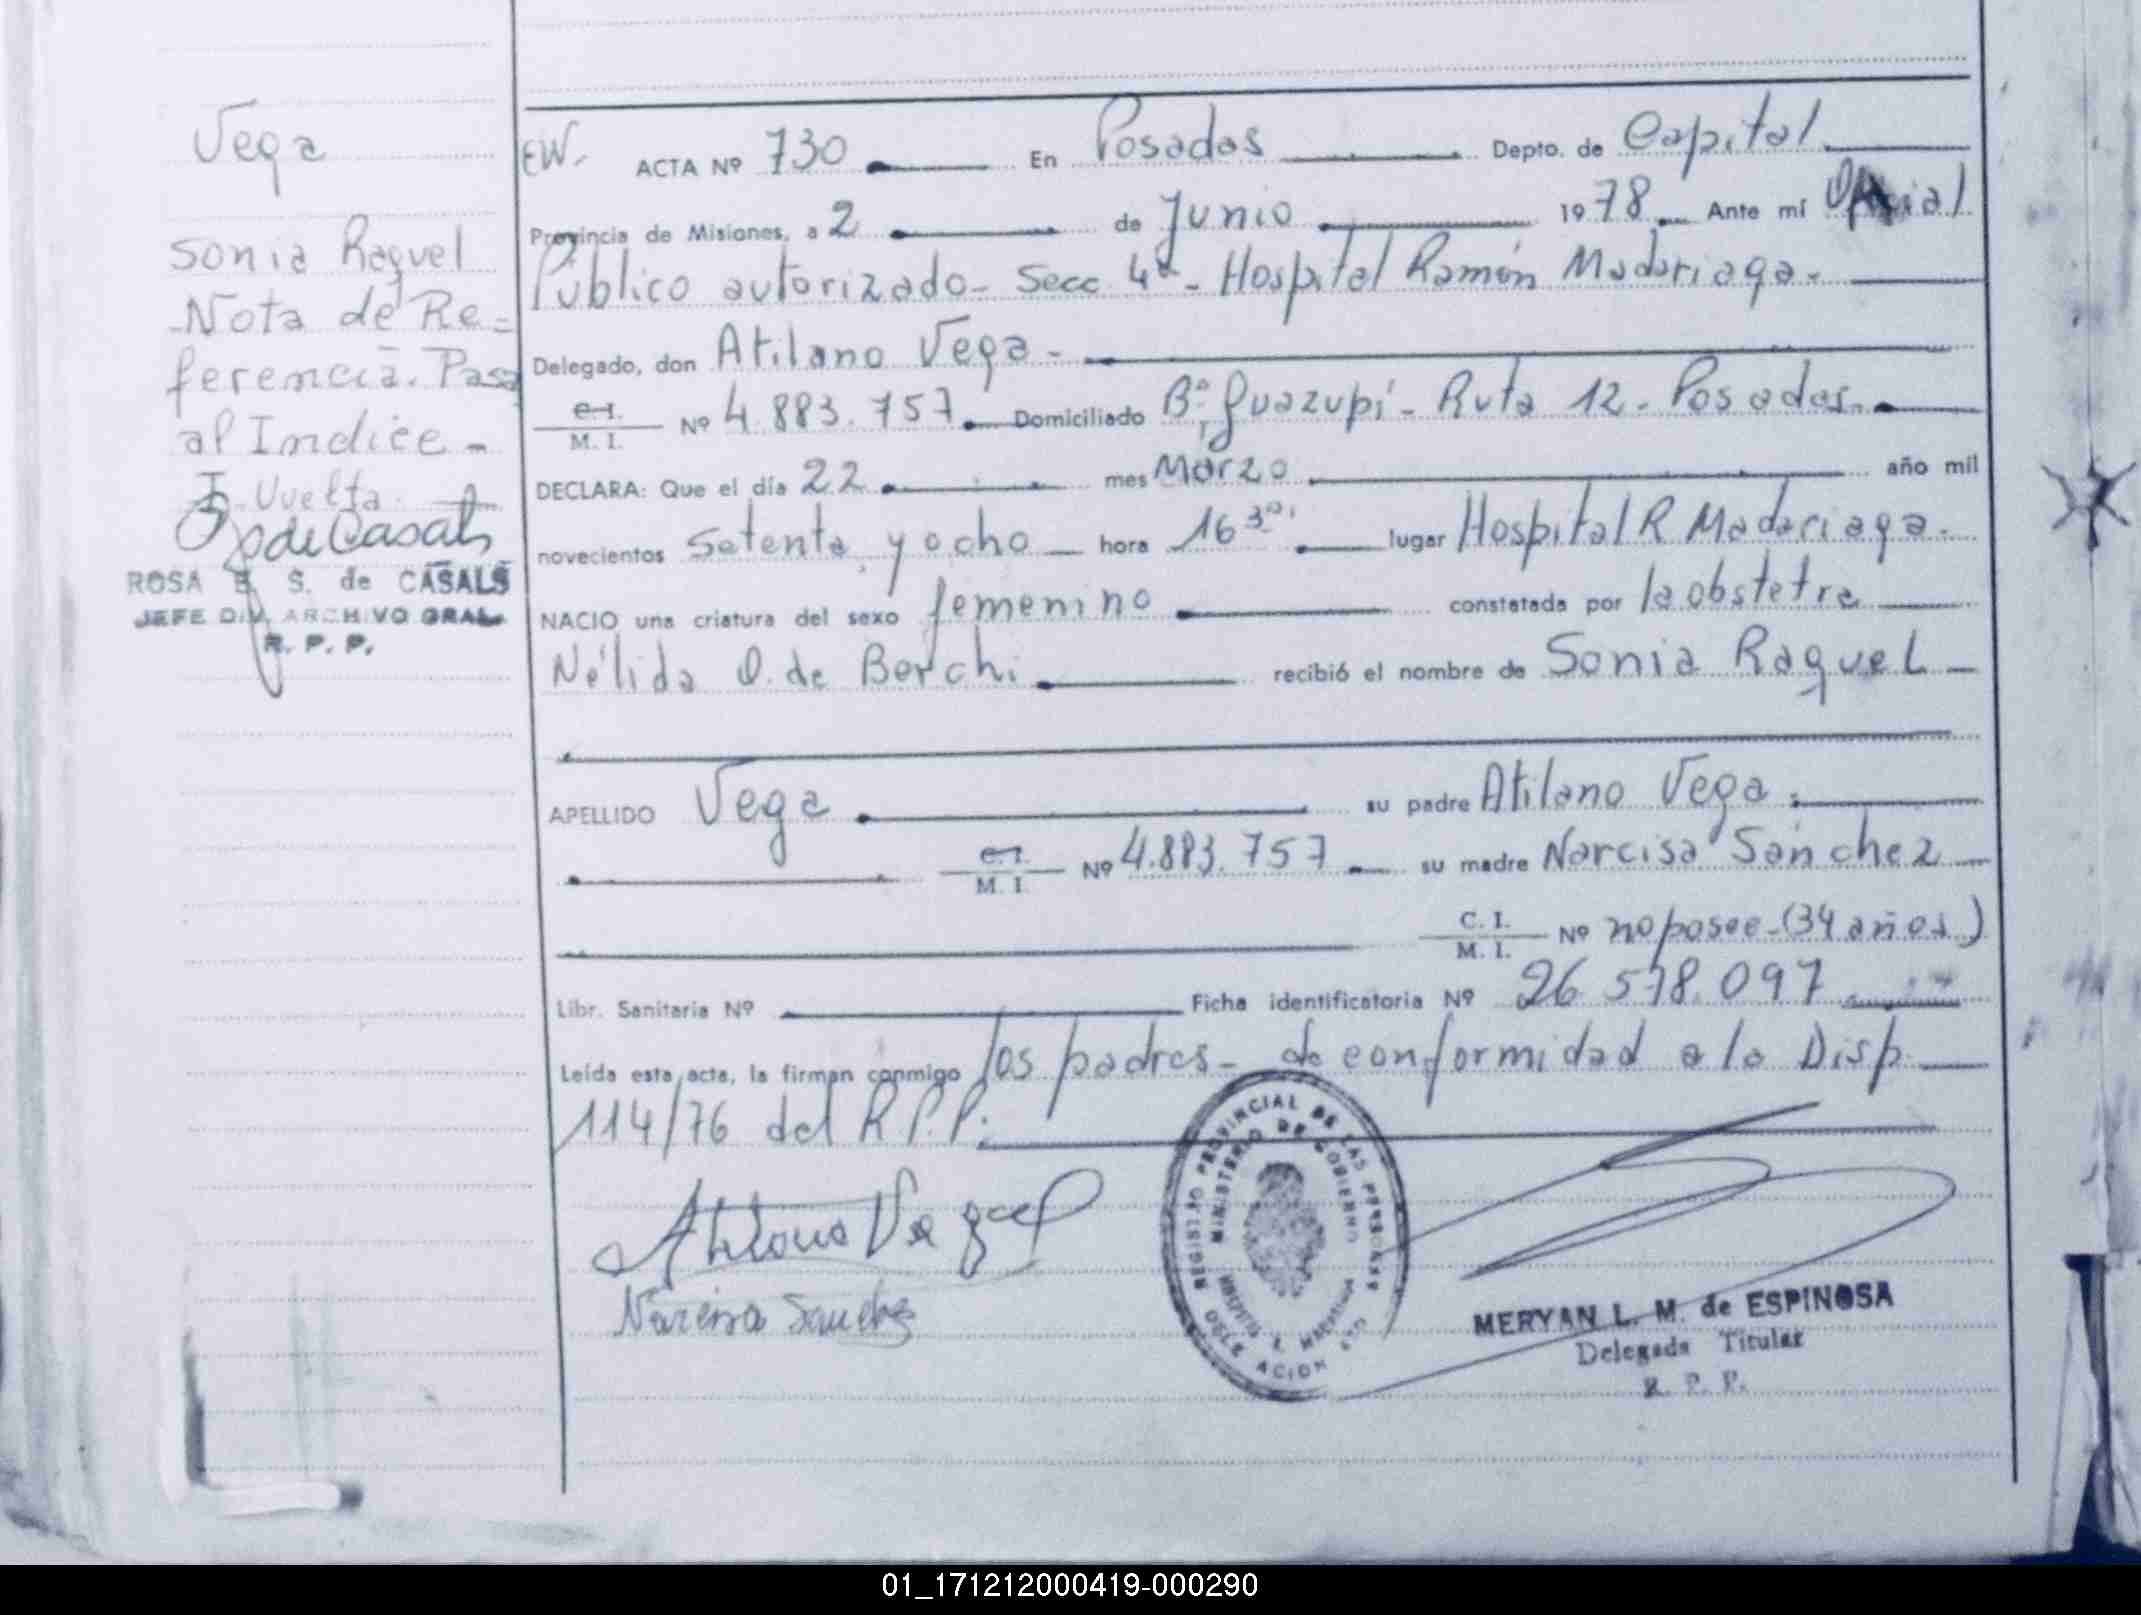 Vega
Sonia Raquel
-Nota de Re=
ferencia. Pasa
al Indice -
Vuelta.
de Casals
ROSA E. S. de CASALS
JEFE DIV. ARCHIVO GRAL.
R. P. P.
EW. ACTA Nº 730 En Posadas Depto. de Capital
Provincia de Misiones, a 2 de Junio 1978. Ante mí Oficial
Público autorizado- Secc 4ª - Hospital Ramón Madariaga.-
Delegado, don Atilano Vega -
C.I. M. I. Nº 4.883.757. Domiciliado Bº Guazupí - Ruta 12 - Posadas.
DECLARA: Que el día 22 mes Marzo año mil
novecientos setenta y ocho hora 16 30' lugar Hospital R. Madariaga.
NACIO una criatura del sexo femenino constatada por la obstetra
Nélida O. de Berchi recibió el nombre de Sonia Raquel
APELLIDO Vega su padre Atilano Vega
C.I. M. I. Nº 4.883.757 su madre Narcisa Sánchez
C. I. M. I. Nº no posee - (34 años)
Libr. Sanitaria Nº Ficha identificatoria Nº 26 578.097
Leída esta acta, la firman conmigo los padres - de conformidad a la Disp
114/76 del R.P.P.
Atilano Vega
Narcisa Sanchez
REGISTRO PROVINCIAL DE LAS PERSONAS
MINISTERIO DE GOBIERNO
DELEGACION
MERYAN L. M. de ESPINOSA
Delegada Titular
R. P. P.
01_171212000419-000290